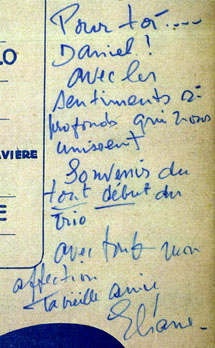 Pour toi....
Daniel !
avec les
LO
sentiments si
profonds qui nous
unissent
VIÈRE
Souvenir du
tout début du
E
trio
avec tout mon
affection
ta vieille amie
Eliane.